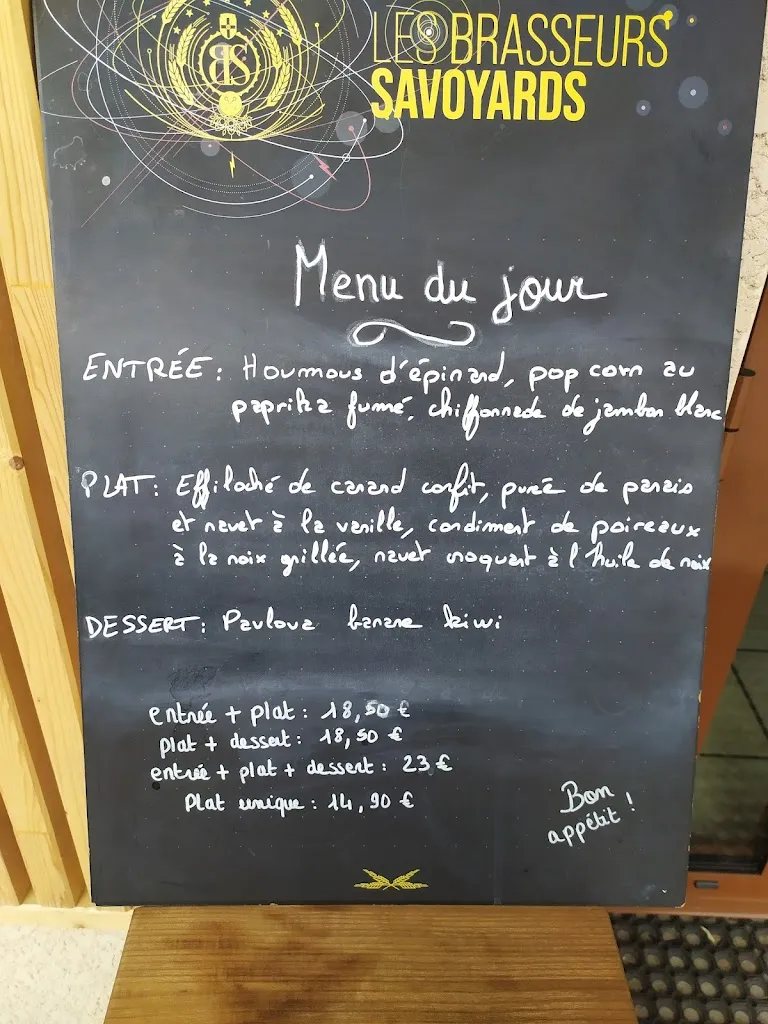 LES BRASSEURS
SAVOYARDS
BS
Menu du jour
ENTRÉE : Houmous d'épinard, pop corn au
paprika fumé, chiffonnade de jambon blanc
PLAT : Effiloché de canard confit, purée de panais
et navet à la vanille, condiment de poireaux
à la noix grillée, navet croquant à l'huile de noix
DESSERT : Pavlova banane kiwi
entrée + plat : 18,50 €
plat + dessert : 18,50 €
entrée + plat + dessert : 23 €
Plat unique : 14,90 €
Bon
appétit !